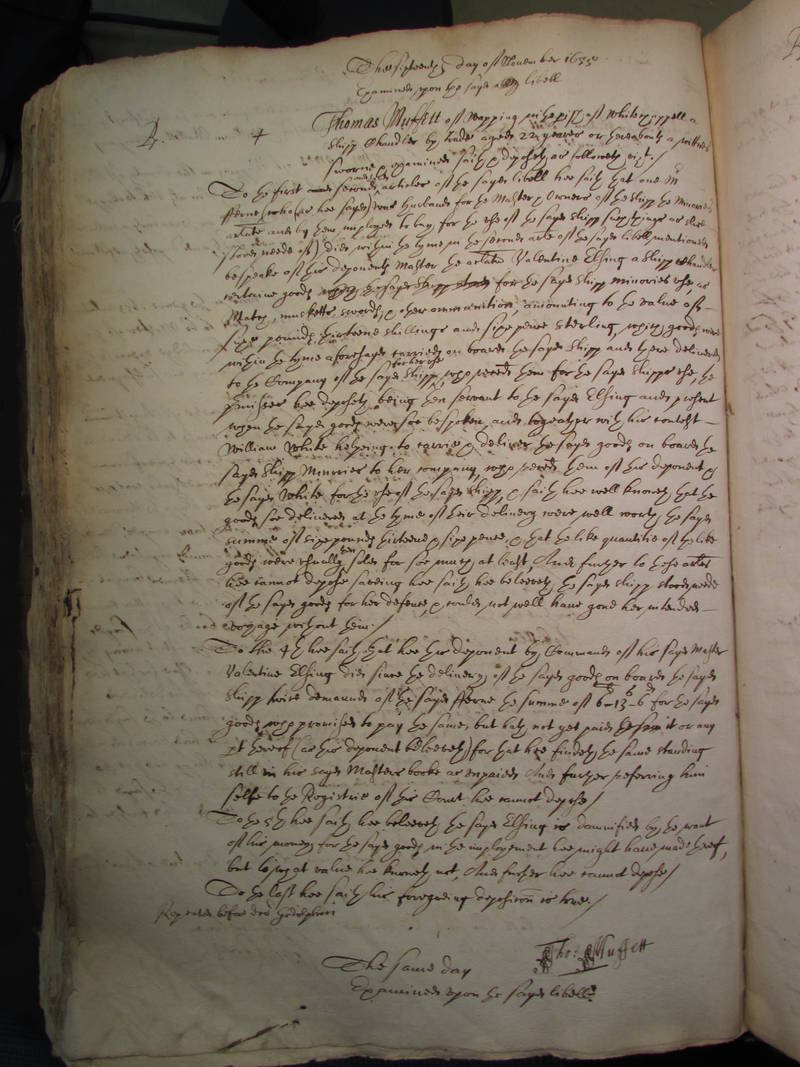 The sixteenth day of November 1655
Examined upon the sayd libell
2. 4 Thomas Muffett of Wapping in the parish of White Chappell
Shipp Chandler by trade aged 22 yeares or thereabouts a wittnes
sworne and examined saith and deposeth as followeth vizt./
To the first and second articles of the sayd libell hee saith that one Mr
fferne (who (as hee sayd) was husband for the Master and Owners of the shipp the Minories
arlate and by them imployed to buy for the use of the sayd shipp such things as shee
stood neede of) did within the tyme in the second arlate of the sayd libell mentioned
bespeake of this deponents Master the arlate Valentine Elsing a Shipp Chandler
certaine goods for the sayd shipp Minories use as
Match, musketts, swords, and other ammunition, amounting to the value of
sixe pounds thirteene shillings and sixe pence sterling which goods were
within the tyme aforesayd carried on board the sayd shipp and there delivered
to the Company of the sayd shipp who received them for the sayd shipps use, the
premisses hee deposeth being then servant to the sayd Elsing and present
when the sayd goods were soe bespoken, and togeather with his contest
William White helping to carrie and deliver the sayd goods on board the
sayd shipp Minories to her company, who received them of this deponent and
the sayd White for the use of the sayd shipp, and saith hee well knoweth that the
goods soe delivered at the tyme of their delivery were well worth the sayd
summe of sixe pounds thirteene and sixe pence, and that the like quantitie of the like
goods were usually then sold for soe much at least, And further to these arlates
hee cannot depose saveing hee saith hee beleeveth the sayd shipp stood neede
of the sayd goods for her defence, and could not well have gone her intended
voyage without them./
To the 4th hee saith that hee this deponent by Command of his sayd Master
Valentine Elsing did since the delivery of the sayd goods on board the sayd
shipp twice demaund of the sayd fferne the summe of 6-13-6 for the sayd
goods who promised to pay the same, but hath not yet paid it or any
pt thereof (as this deponent beleeveth) for that hee findeth the same standing
still in his sayd Masters booke as unpaied And further referring him
selfe to the Registrie of this Court hee cannot depose/
To the 5th hee saith hee beleeveth the sayd Elsing is damnified by the want
of his money for the sayd goods in the imployment hee might have made thereof,
but to what value hee knoweth not, And further hee cannot depose/
To the last hee saith his foregoeing deposition is true/
Repeated before Godolphin
Tho: Muffett
The same day
Examined upon the sayd libell